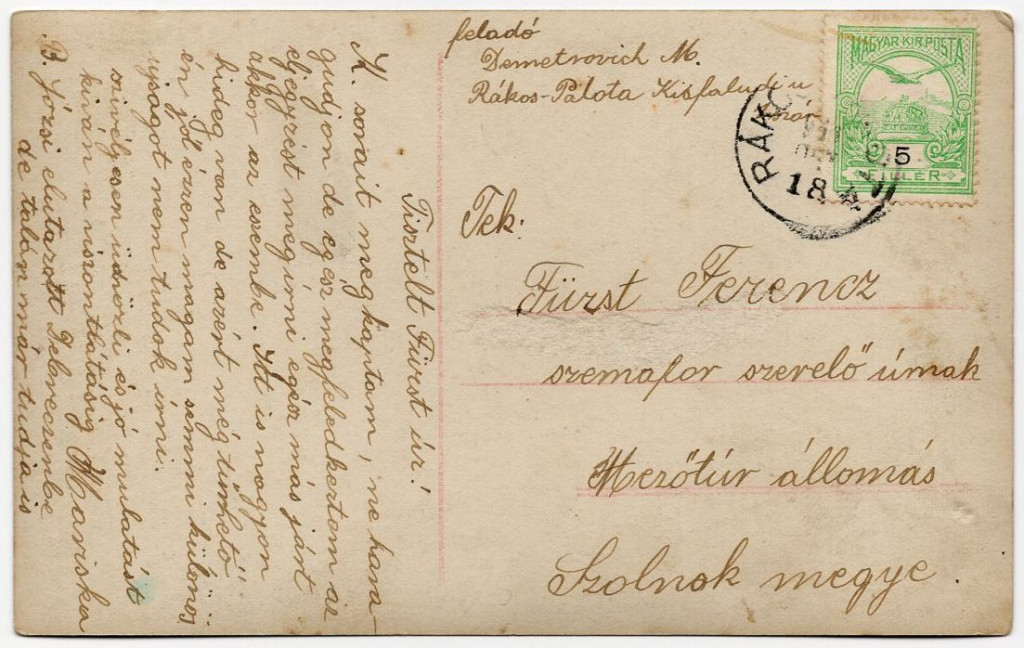 feladó
Demetrovich M.
Rákos-Palota Kisfaludi u
MAGYAR KIR. POSTA
5
FILLÉR
RÁKO
18
Tek.
Fürst Ferencz
szemafor szerelő úrnak
Mezőtúr állomás
Szolnok megye.
Tisztelt Fürst úr!
K. sorait megkaptam, ne hara-
gudjon de egész megfeledkeztem az
eljegyzést megirni egész más járt
akkor az eszembe. Itt is nagyon
hideg van de azért még türhető
én jól érzem magam semmi különös
ujságot nem tudok írni.
szivélyesen üdvözli és jó mulatást
kiván a viszontlátásig Mariska
B. Józsi elutazott Debreczenbe
de talán már tudja is